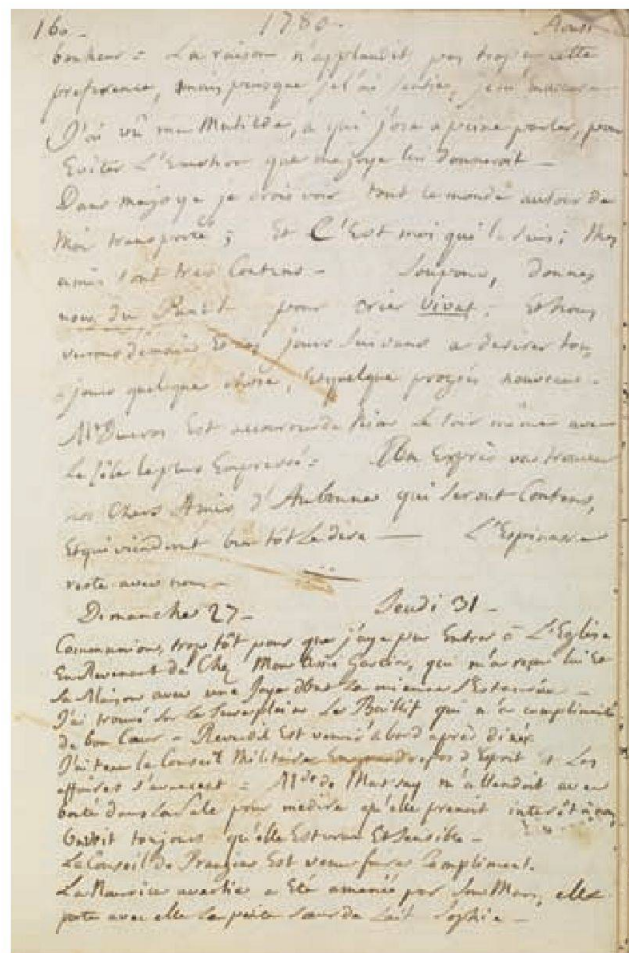 160. 1780. Aoust
bonheur = La raison n'applaudit pas trop a cette
preference, mais puisque je l'ai sentie, j'en
J'ai vû ma Matilde, a qui j'ose a peine parler, pour
Eviter L'Emotion que ma joye lui donneroit —
Dans ma joye je crois voir tout le monde autour de
Moi transporté ; Et C'Est moi qui le suis ; Mes
amis sont tres Contens — Soupons, donnes
nous du pour crier vivat ; Et nous
demain Et les jours suivans a desirer tou
=jours quelque chose, Et quelque projet nouveau =
Mr Est accouru de le soir même avec
Le Zèle le plus Empressé = Un Exprès va trouver
nos Chers Amis d'Aubonne qui seront Contens,
Et qui viendront bientôt Le dire — L'Espinasse
reste avec nous —
Dimanche 27 — Jeudi 31 —
Communion, trop tôt pour que j'aye pu Entrer à L'Eglise
En Revenant de Chez Mon Ami Garcin, qui m'a reçu lui Et
sa Maison avec une Joye dont la mienne s'est —
J'ai trouvé sur le Le Baillif qui m'a complimenté
de bon Cœur — Reverdil est venu d'abord après diné
J'ai tenu le Conseil Militaire d'Esprit Et Les
affaires s'avancent = Me de m'attendoit avec
bonté dans la Sale pour me dire qu'elle prenoit interêt à
toujours qu'elle Est vraie Et Sensible —
Le Conseil de Prangins Est venu faire Compliment.
La Nourrice avertie a Eté amenée par son Mari, elle
porte avec elle la petite Sœur de Lait Sophie —